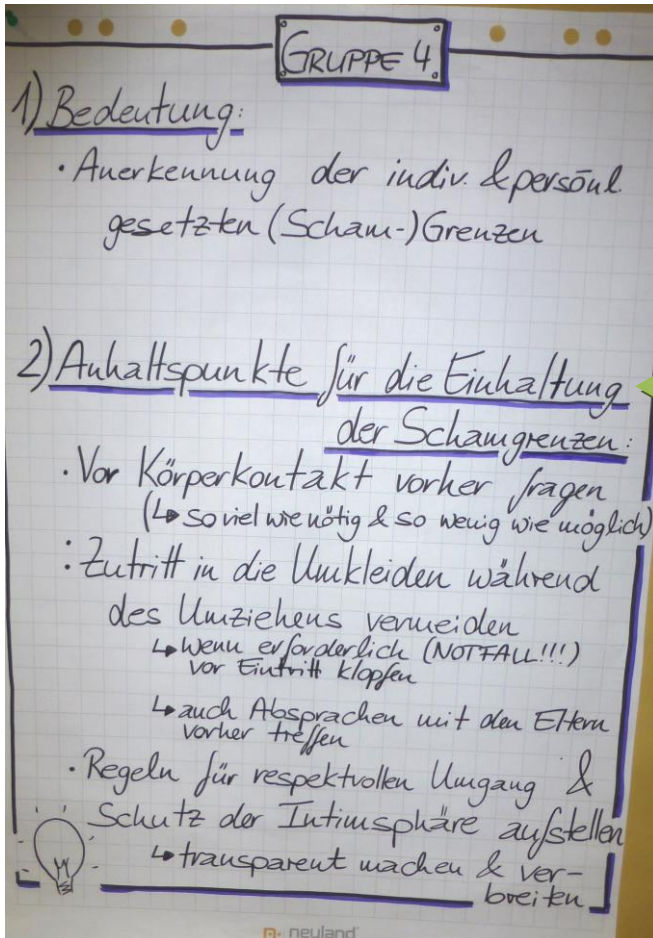 GRUPPE 4
1) Bedeutung:
· Anerkennung der indiv. & persönl.
gesetzten (Scham-)Grenzen
2) Anhaltspunkte für die Einhaltung
der Schamgrenzen:
· Vor Körperkontakt vorher fragen
(↳ so viel wie nötig & so wenig wie möglich)
: Zutritt in die Umkleiden während
des Umziehens vermeiden
↳ wenn erforderlich (NOTFALL!!!)
vor Eintritt klopfen
↳ auch Absprachen mit den Eltern
vorher treffen
· Regeln für respektvollen Umgang &
Schutz der Intimsphäre aufstellen
↳ transparent machen & ver-
breiten
neuland